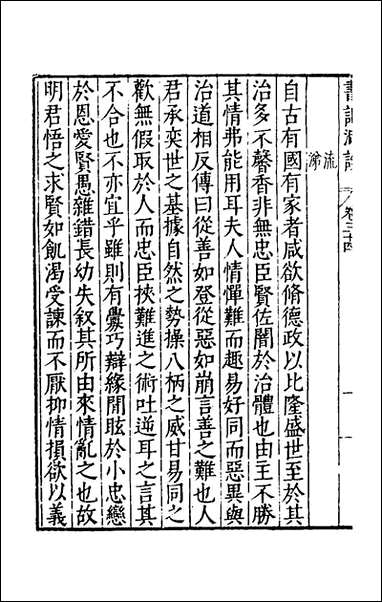 流
涕
自古有國有家者咸欲脩德政以比隆盛世至於其
治多不馨香非無忠臣賢佐闇於治體也由主不勝
其情弗能用耳夫人情憚難而趣易好同而惡異與
治道相反傳曰從善如登從惡如崩言善之難也人
君承奕世之基據自然之勢操八柄之威甘易同之
歡無假取於人而忠臣挾難進之術吐逆耳之言其
不合也不亦宜乎雖則有舋巧辯緣間眩於小忠戀
於恩愛賢愚雜錯長幼失叙其所由來情亂之也故
明君悟之求賢如飢渴受諫而不厭抑情損欲以義